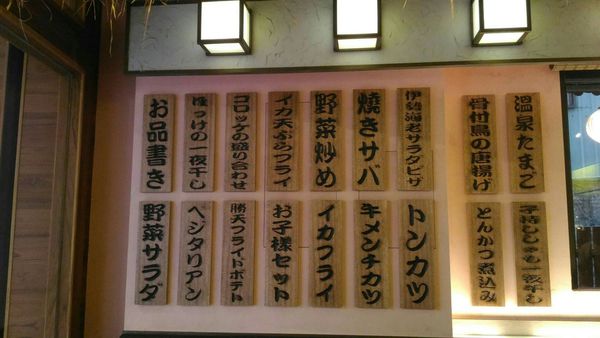 温泉たまご
骨付鳥の唐揚げ
伊勢海老サラダピザ
燒きサバ
野菜炒め
イカ天ぷらフライ
コロッケの盛り合わせ
ほっけの一夜干し
お品書き
子持ししゃも一夜干し
とんかつ煮込み
トンカツ
キメンチカツ
イカフライ
お子様セット
勝天フライドポテト
ヘジタリアン
野菜サラダ